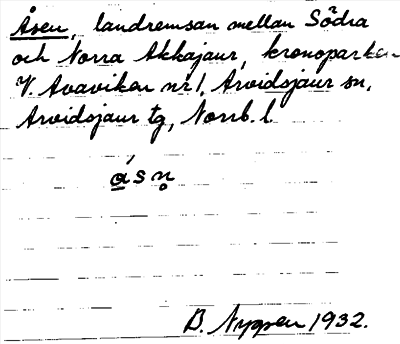 Åsen, landremsan mellan Södra
och Norra Akkajaur, kronoparken
V. Avaviken nr 1, Arvidsjaur sn,
Arvidsjaur tg, Norrb. l.
ásn̥
B. Nygren 1932.